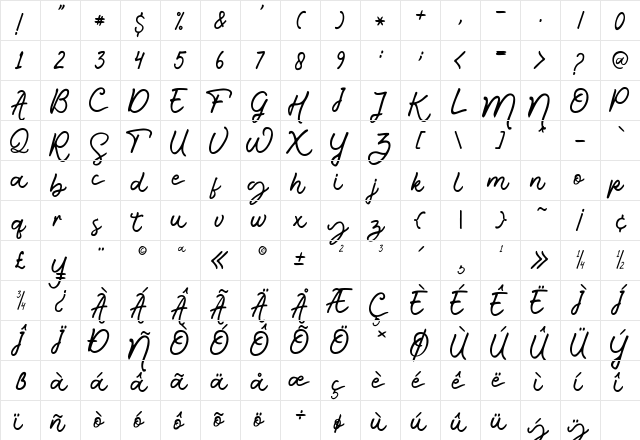 ! " # $ % & ' ( ) * + , - . / 0
1 2 3 4 5 6 7 8 9 : ; < = > ? @
A B C D E F G H I J K L M N O P
Q R S T U V W X Y Z [ \ ] ^ _ `
a b c d e f g h i j k l m n o p
q r s t u v w x y z { | } ~ ¡ ¢
£ ¥ ¨ © ª « ® ± ² ³ ´ ¸ ¹ » ¼ ½
¾ ¿ À Á Â Ã Ä Å Æ Ç È É Ê Ë Ì Í
Î Ï Ð Ñ Ò Ó Ô Õ Ö × Ø Ù Ú Û Ü Ý
ß à á â ã ä å æ ç è é ê ë ì í î
ï ñ ò ó ô õ ö ÷ ø ù ú û ü ý ÿ